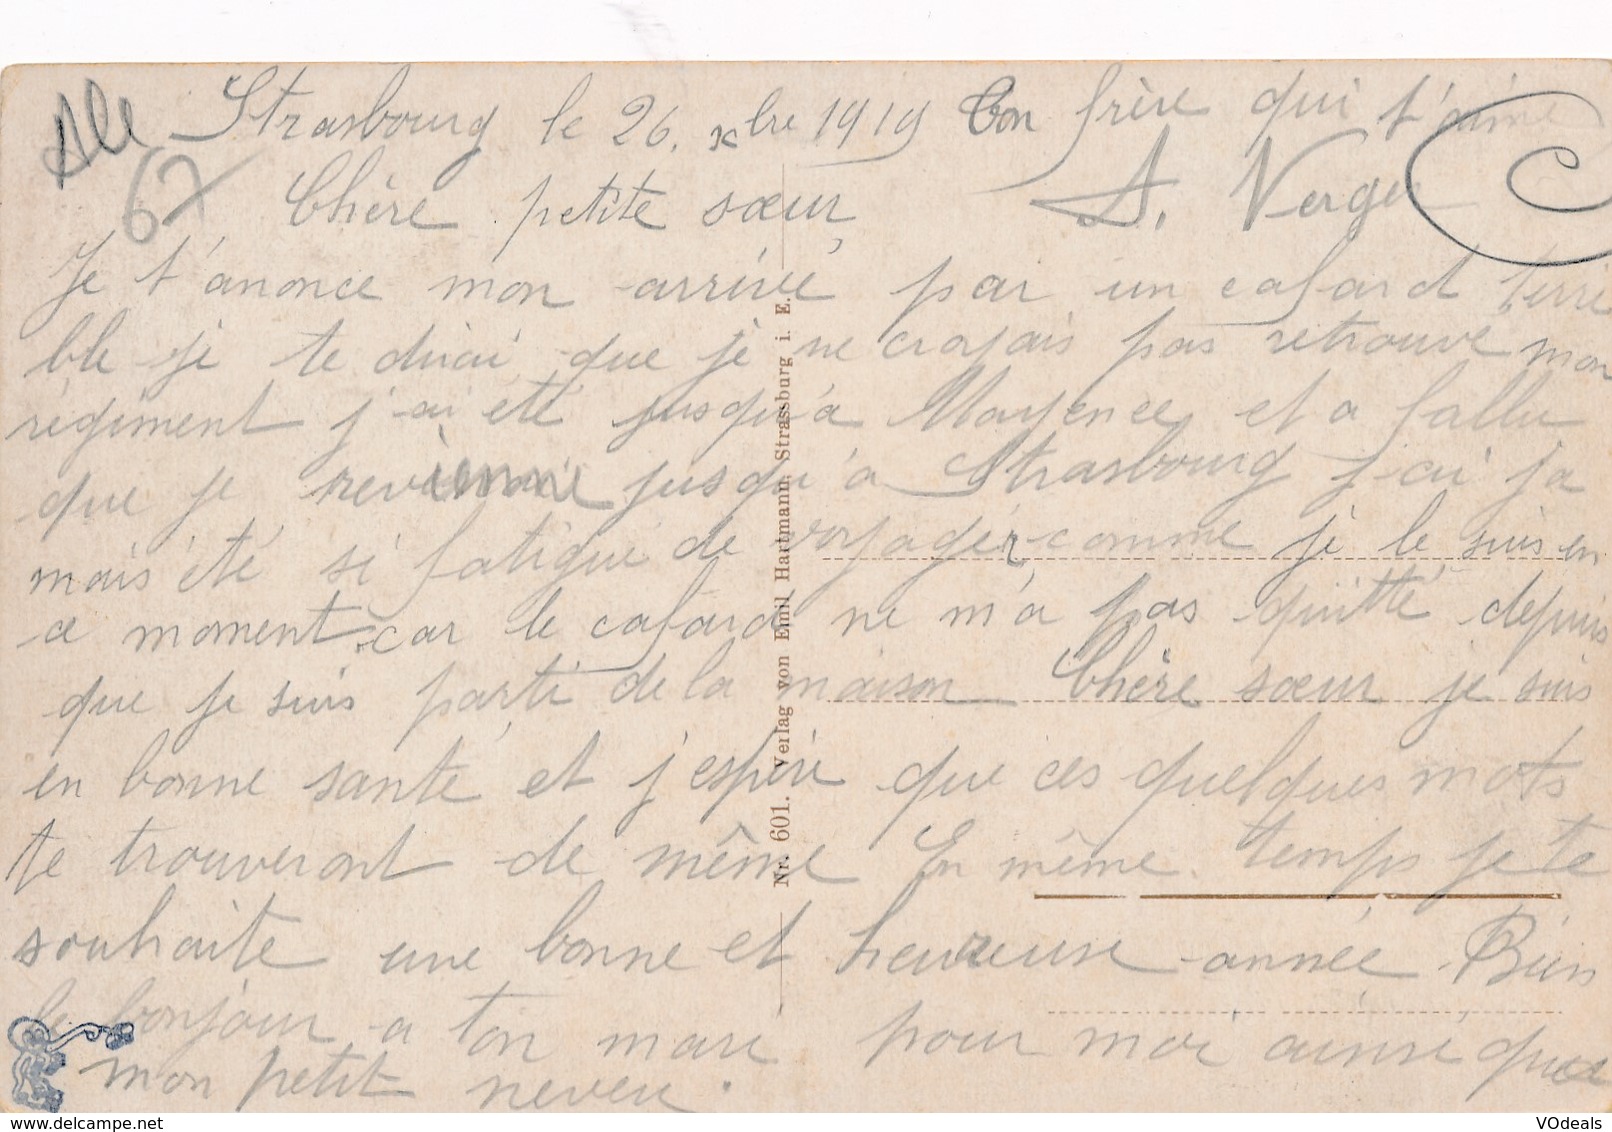 Strasbourg le 26. xbre 1919
Chère petite sœur,
Je t'anonce mon arrivé par un cafard terri
ble je te dirai que je ne croyais pas retrouvé mon
régiment j'ai été jusqu'à Mayence et a fallu
que je revienne jusqu'a Strasbourg j'ai ja
mais été si fatigué de voyager comme je le suis en
ce moment car le cafard ne m'a pas quitté depuis
que je suis parti de la maison Chère sœur je suis
en bonne santé et j'espère que ces quelques mots
te trouveront de même En même temps je te
souhaite une bonne et heureuse année Bien
le bonjour a ton mari pour moi ainsi que
mon petit neveu.
Ton frère qui t'aime
A. Verger
All
67
C
Nr. 601. Verlag von Emil Hartmann, Strassburg i. E.
VOdeals